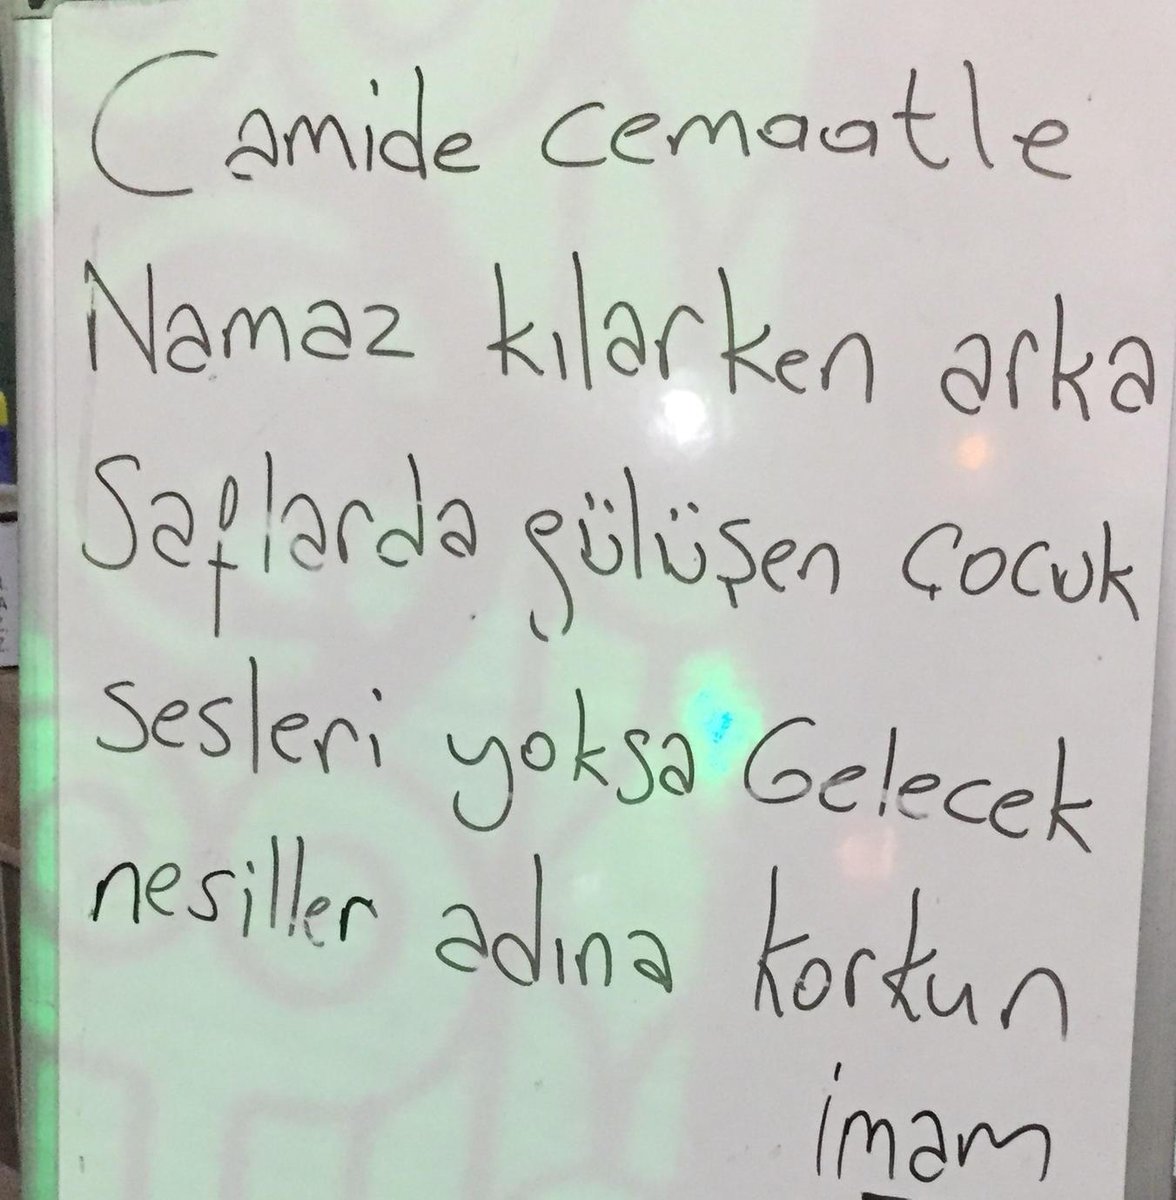 Camide cemaatle
Namaz kılarken arka
Saflarda gülüşen çocuk
sesleri yoksa Gelecek
nesiller adına korkun
imam